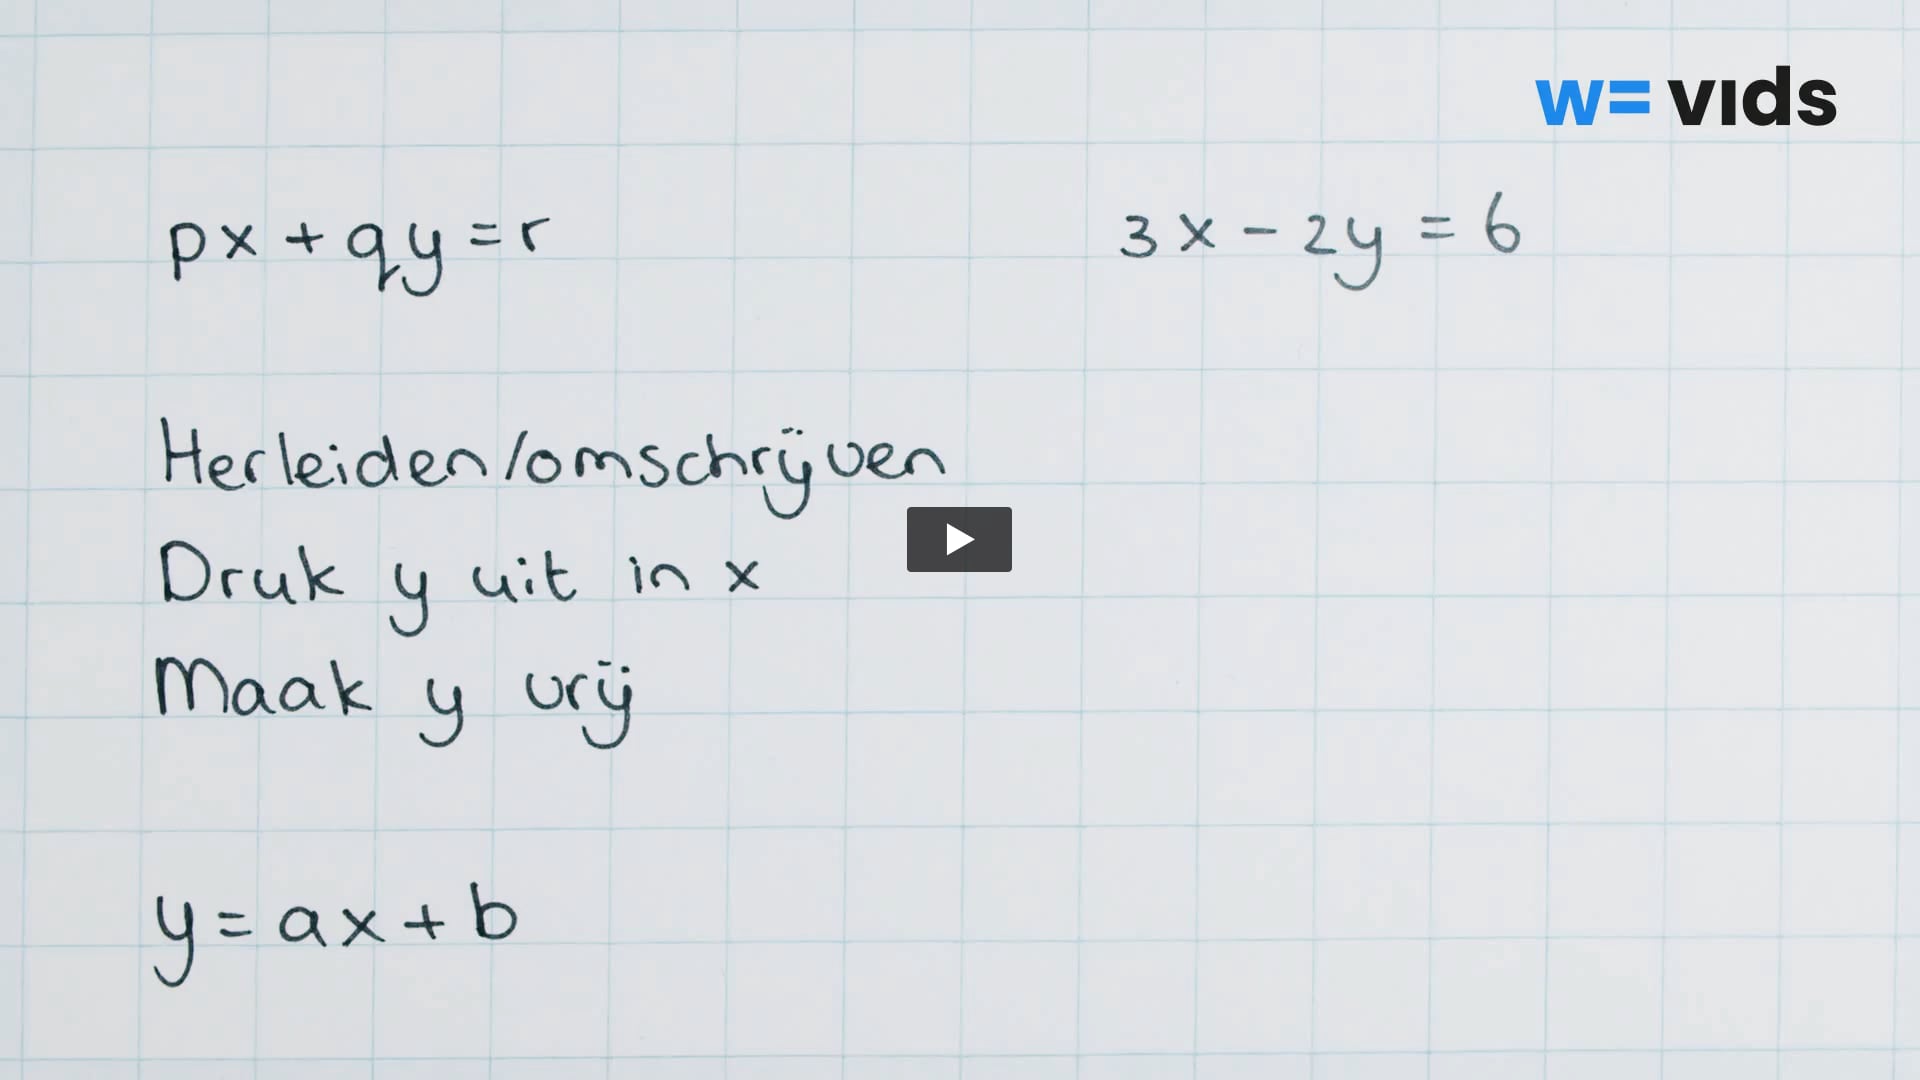 w= vıds
px + qy = r
3x - 2y = 6
Herleiden/omschrijven
Druk y uit in x
Maak y vrij
y = ax + b